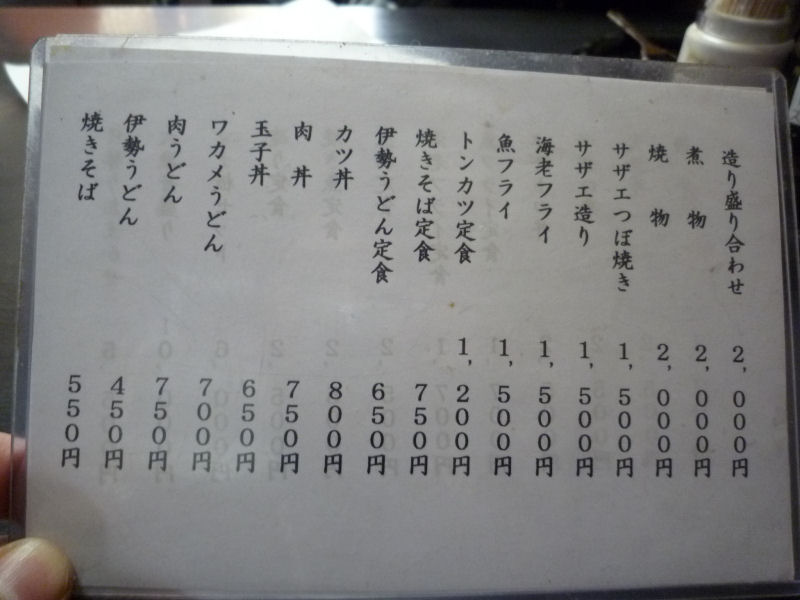 造り盛り合わせ 2,000円
煮物 2,000円
焼物 2,000円
サザエつぼ焼き 1,500円
サザエ造り 1,500円
海老フライ 1,500円
魚フライ 1,500円
トンカツ定食 1,200円
焼きそば定食 750円
伊勢うどん定食 650円
カツ丼 800円
肉丼 750円
玉子丼 650円
ワカメうどん 700円
肉うどん 750円
伊勢うどん 450円
焼きそば 550円